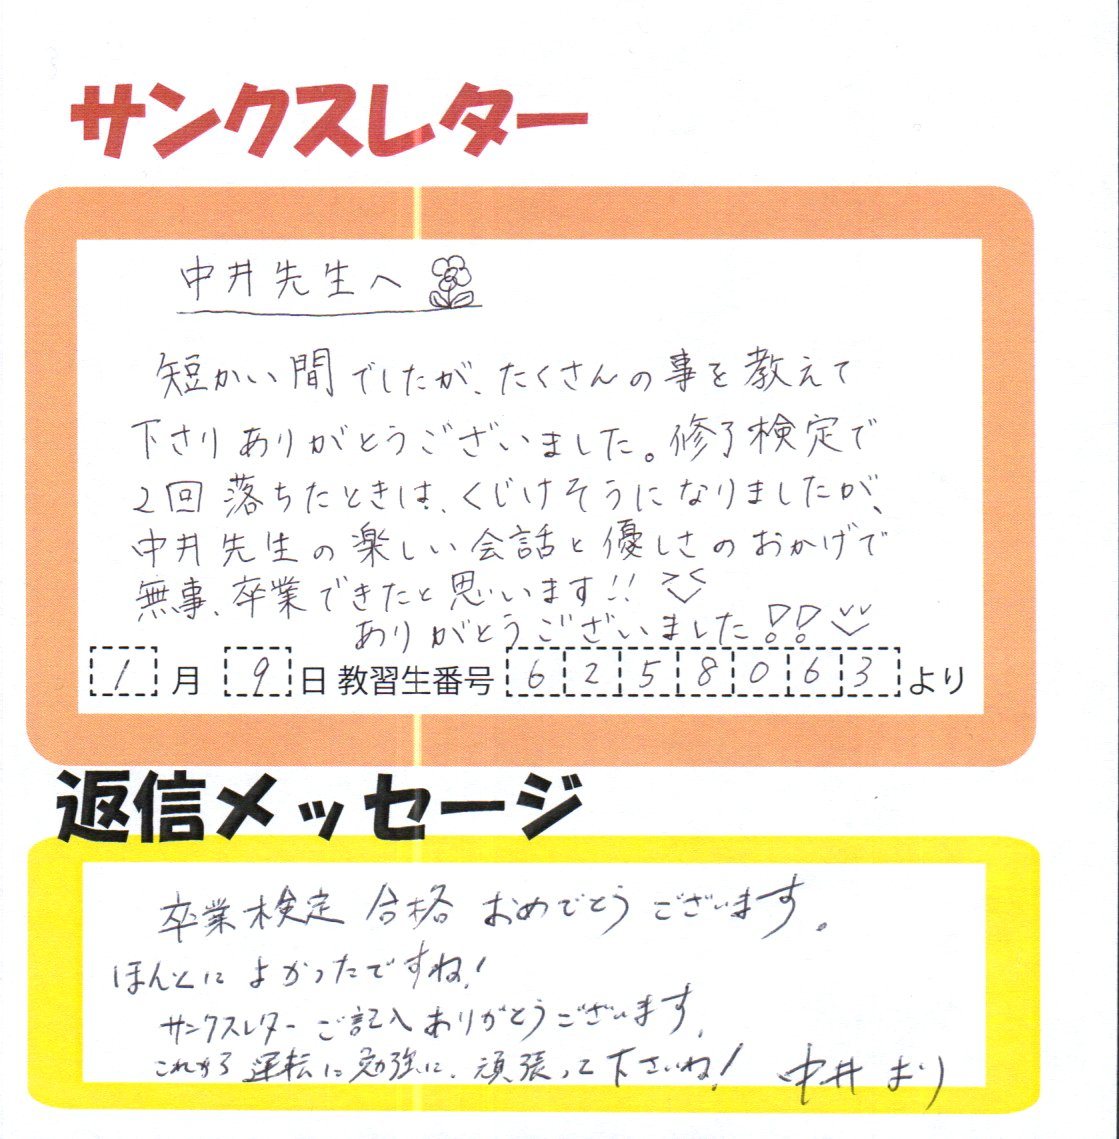 サンクスレター
中井先生へ
短かい間でしたが、たくさんの事を教えて
下さりありがとうございました。修了検定で
2回落ちたときは、くじけそうになりましたが、
中井先生の楽しい会話と優しさのおかげで
無事、卒業できたと思います!!
ありがとうございました!!
1月9日教習生番号6258063より
返信メッセージ
卒業検定合格おめでとうございます。
ほんとによかったですね!
サンクスレターご記入ありがとうございます。
これから運転に勉強に、頑張って下さいね! 中井より